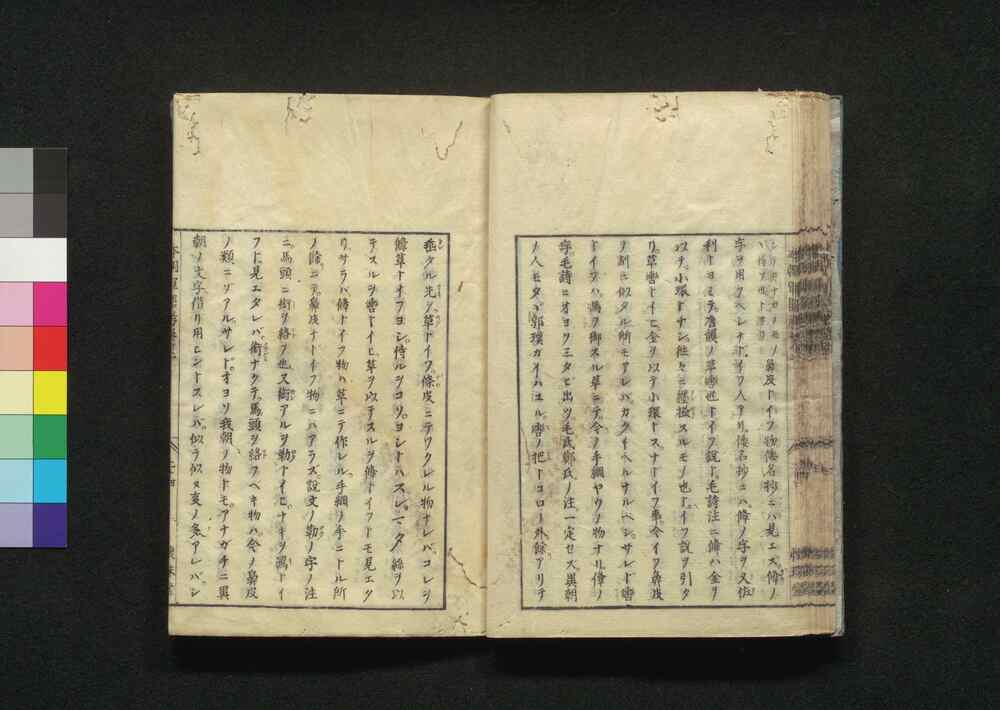 ノ鼻皮トイフ物倭名抄ニハ見エズ鞗ノ
字ヲ用フベシナドイフ人アリ倭名抄ニハ鞗ノ字ヲ又佐
利トヨミテ唐韻ノ革轡也トイフ説ト毛詩注ニ鞗ハ金ヲ
以テ小環トナシ往々ニ纒搤スルモノ也トイフ説ヲ引タ
リ革轡トイヒ金ヲ以テ小環トストイフ事今イフ鼻皮
ノ制ニ似タル所モアレバカクイヘルナルベシサレド轡
トイフハ馬ヲ御スル革ニテ今ノ手綱ヤウノ物ナリ鞗ノ
字毛詩ニオヨソ三タビ出ツ毛氏鄭氏ノ注一定セス異朝
ノ人モタヾ郭璞ガイハユル轡ノ把トコロノ外餘アリテ
垂タル先ヲ革トイフ條皮ニテツクレル物ナレバコレヲ
鞗革トイフヨシ侍ルヲコソヨシトハスレマタ絲ヲ以
テスルヲ轡トイヒ革ヲ以テスルヲ鞗トイフトモ見エタ
リサラバ鞗トイフ物ハ革ニテ作レル手綱ノ手ニトル所
ノ餘ニテ鼻皮ナトイフ物ニハアラズ説文ノ勒ノ字ノ注
ニ馬頭ニ銜ヲ絡フ也又銜アルヲ勒トイヒナキヲ羈トイ
フト見エタレバ銜ナクテ馬頭ヲ絡フベキ物ハ今ノ鼻皮
ノ類ニゾアルサレドオヨソ我朝ノ物トモアナガチニ異
朝ノ文字借リ用ヒントスレバ似ラ似ヌ事ノ多アレバソ